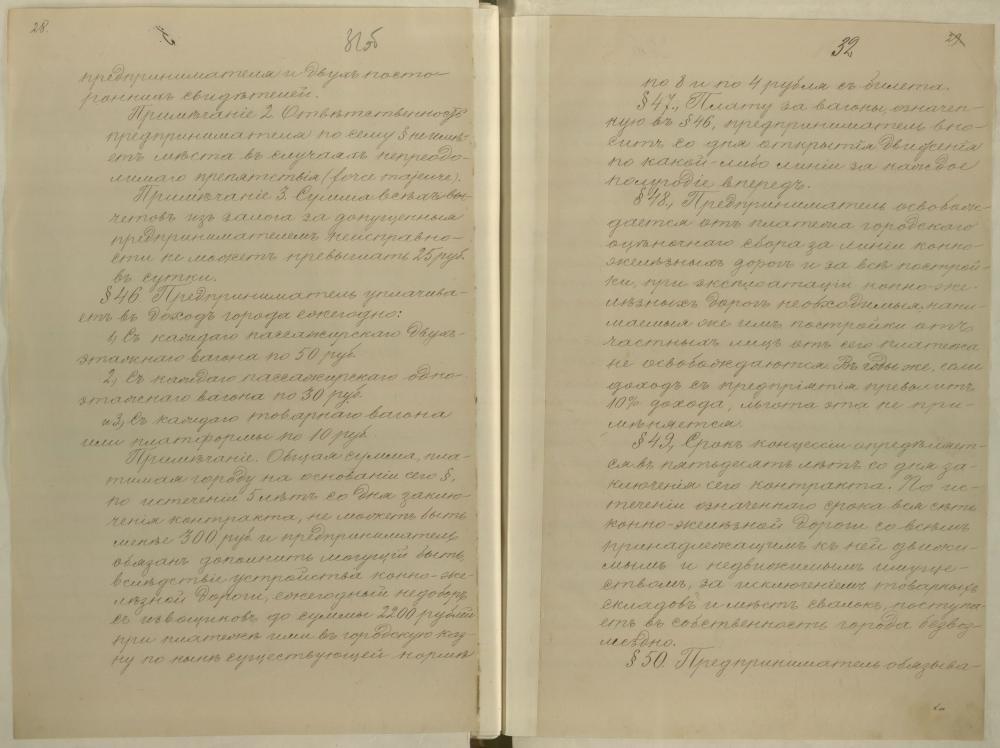 28.
31об
предпринимателя и двухъ посто-
роннихъ свидѣтелей.
Примѣчаніе 2. Отвѣтственность
предпринимателя по сему § не имѣ-
етъ мѣста въ случаяхъ непреодо-
лимаго препятствія (force majeure).
Примѣчаніе 3. Сумма всѣхъ вы-
четовъ изъ залога за допущенныя
предпринимателемъ неисправно-
сти не можетъ превышать 25 руб.
въ сутки.
§ 46 Предприниматель уплачива-
етъ въ доходъ города ежегодно:
1, Съ каждаго пассажирскаго двухъ-
этажнаго вагона по 50 руб.
2, Съ каждаго пассажирскаго одно-
этажнаго вагона по 30 руб.
и 3, Съ каждаго товарнаго вагона
или платформы по 10 руб.
Примѣчаніе. Общая сумма, пла-
тимая городу на основаніи сего §,
по истеченіи 5 лѣтъ со дня заклю-
ченія контракта, не можетъ быть
менѣе 300 руб. и предприниматель
обязанъ дополнить могущій быть,
вслѣдствіи устройства конно-же-
лѣзной дороги, ежегодный недоборъ
съ извощиковъ до суммы 2200 рублей
при платежѣ ими въ городскую каз-
ну по нынѣ существующей нормѣ
32
29
по 8 и по 4 рубля съ билета.
§ 47, Плату за вагоны, означен-
ную въ § 46, предприниматель вно-
ситъ со дня открытія движенія
по какой-либо линіи за каждое
полугодіе впередъ.
§ 48, Предприниматель освобож-
дается отъ платежа городскаго
оцѣночнаго сбора за линіи конно-
желѣзныхъ дорогъ и за всѣ построй-
ки, при эксплоатаціи конно-же-
лѣзныхъ дорогъ необходимыя, нани-
маемыя же имъ постройки отъ
частныхъ лицъ отъ сего платежа
не освобождаются. Въ годы же, если
доходъ съ предпріятія превыситъ
10% дохода, льгота эта не при-
мѣняется.
§ 49, Срокъ концессіи опредѣляет-
ся въ пятьдесятъ лѣтъ со дня за-
ключенія сего контракта. По ис-
теченіи означеннаго срока вся сѣть
конно-желѣзной дороги со всѣмъ
принадлежащимъ къ ней движи-
мымъ и недвижимымъ имуще-
ствомъ, за исключеніемъ товарныхъ
складовъ и мѣстъ свалокъ, поступа-
етъ въ собственность города безвоз-
мездно.
§ 50. Предприниматель обязыва-